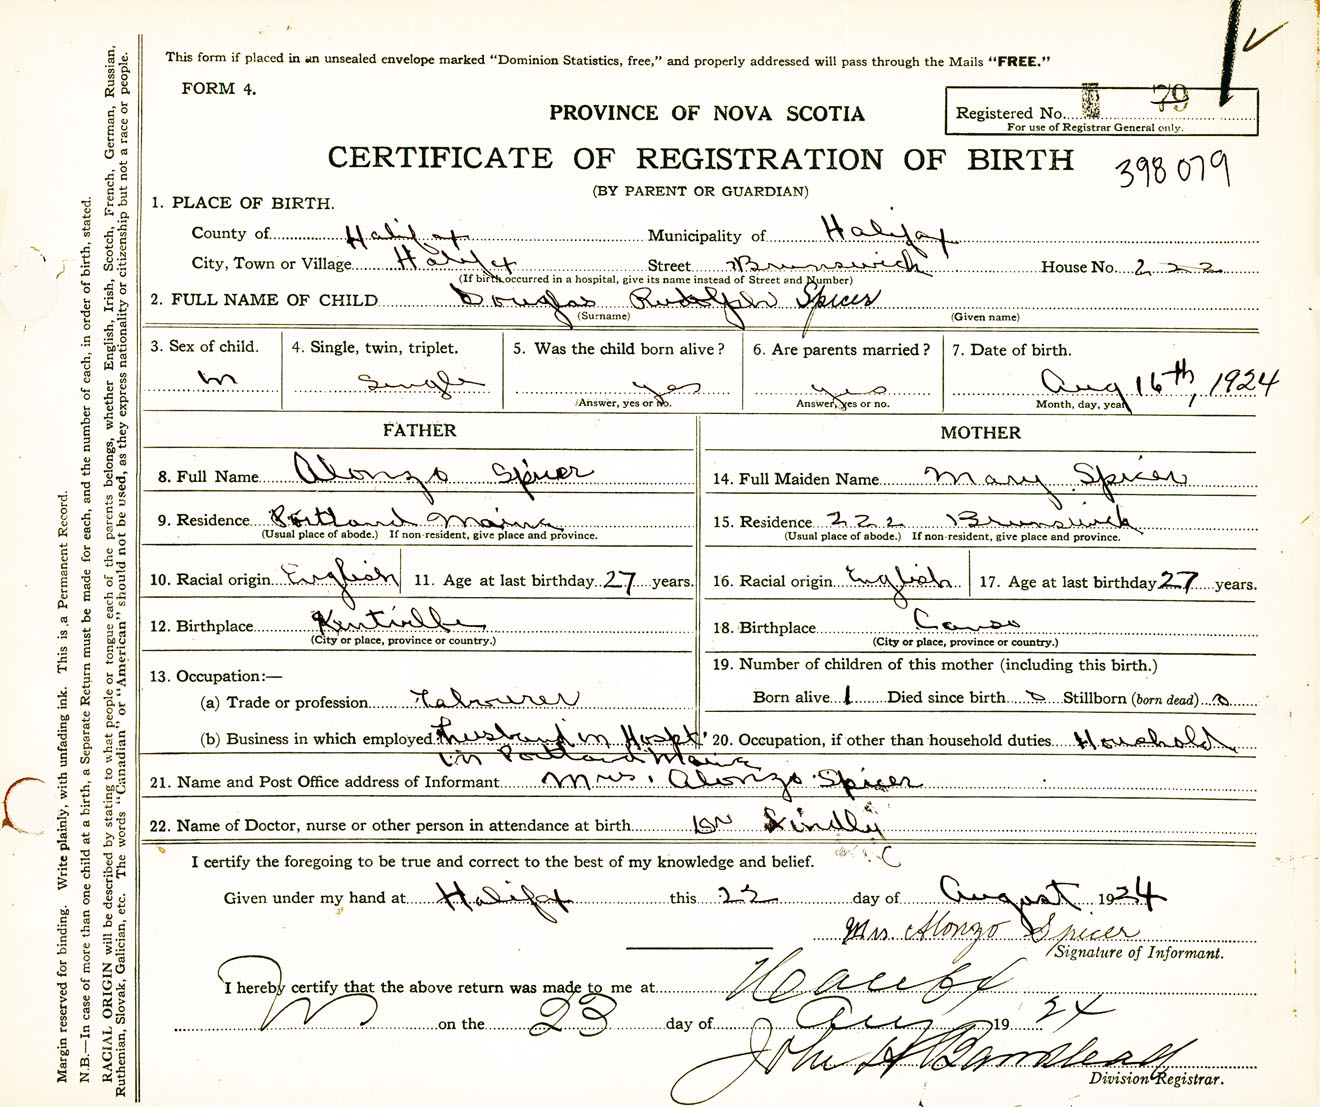 This form if placed in an unsealed envelope marked "Dominion Statistics, free," and properly addressed will pass through the Mails "FREE."
FORM 4.
PROVINCE OF NOVA SCOTIA
Registered No. 79
For use of Registrar General only.
CERTIFICATE OF REGISTRATION OF BIRTH
398079
(BY PARENT OR GUARDIAN)
1. PLACE OF BIRTH.
County of Halifax Municipality of Halifax
City, Town or Village Halifax Street Brunswick House No. 222
(If birth occurred in a hospital, give its name instead of Street and Number)
2. FULL NAME OF CHILD Douglas Rudolph Spicer
(Surname) (Given name)
3. Sex of child. 4. Single, twin, triplet. 5. Was the child born alive? 6. Are parents married? 7. Date of birth.
m Single yes yes Aug 16th, 1924
Answer, yes or no. Answer, yes or no. Month, day, year
FATHER MOTHER
8. Full Name Alonzo Spicer 14. Full Maiden Name Mary Spicer
9. Residence Portland Maine 15. Residence 222 Brunswick
(Usual place of abode.) If non-resident, give place and province. (Usual place of abode.) If non-resident, give place and province.
10. Racial origin English 11. Age at last birthday 27 years. 16. Racial origin English 17. Age at last birthday 27 years.
12. Birthplace Kentville 18. Birthplace Canso
(City or place, province or country.) (City or place, province or country.)
19. Number of children of this mother (including this birth.)
13. Occupation:—
(a) Trade or profession Labourer Born alive 1 Died since birth 0 Stillborn (born dead) 0
(b) Business in which employed husband in Hospt. 20. Occupation, if other than household duties Household
in Portland Maine
21. Name and Post Office address of Informant Mrs. Alonzo Spicer
22. Name of Doctor, nurse or other person in attendance at birth Dr
I certify the foregoing to be true and correct to the best of my knowledge and belief.
Given under my hand at Halifax this 22 day of August 1924
Mrs. Alonzo Spicer
Signature of Informant.
I hereby certify that the above return was made to me at Halifax
on the 23 day of Aug 1924
John A
Division Registrar.
Margin reserved for binding. Write plainly, with unfading ink. This is a Permanent Record.
N.B.—In case of more than one child at a birth, a Separate Return must be made for each, and the number of each, in order of birth, stated.
RACIAL ORIGIN will be described by stating to what people or tongue each of the parents belongs, whether English, Irish, Scotch, French, German, Russian,
Ruthenian, Slovak, Galician, etc. The words "Canadian" or "American" should not be used, as they express nationality or citizenship but not a race or people.